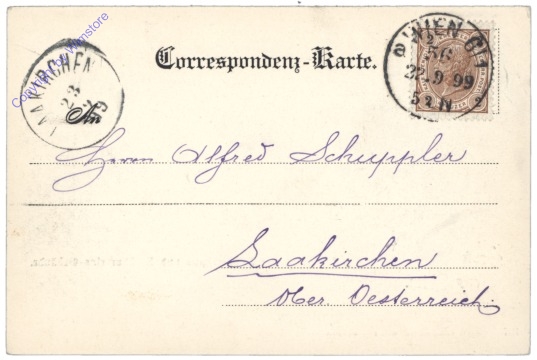 Copyright by Wienstore
Correspondenz-Karte.
WIEN
22.9.99
5 2 N
LAAKIRCHEN
23
9
An
Herrn Alfred Schuppler
Laakirchen
Ober Oesterreich.